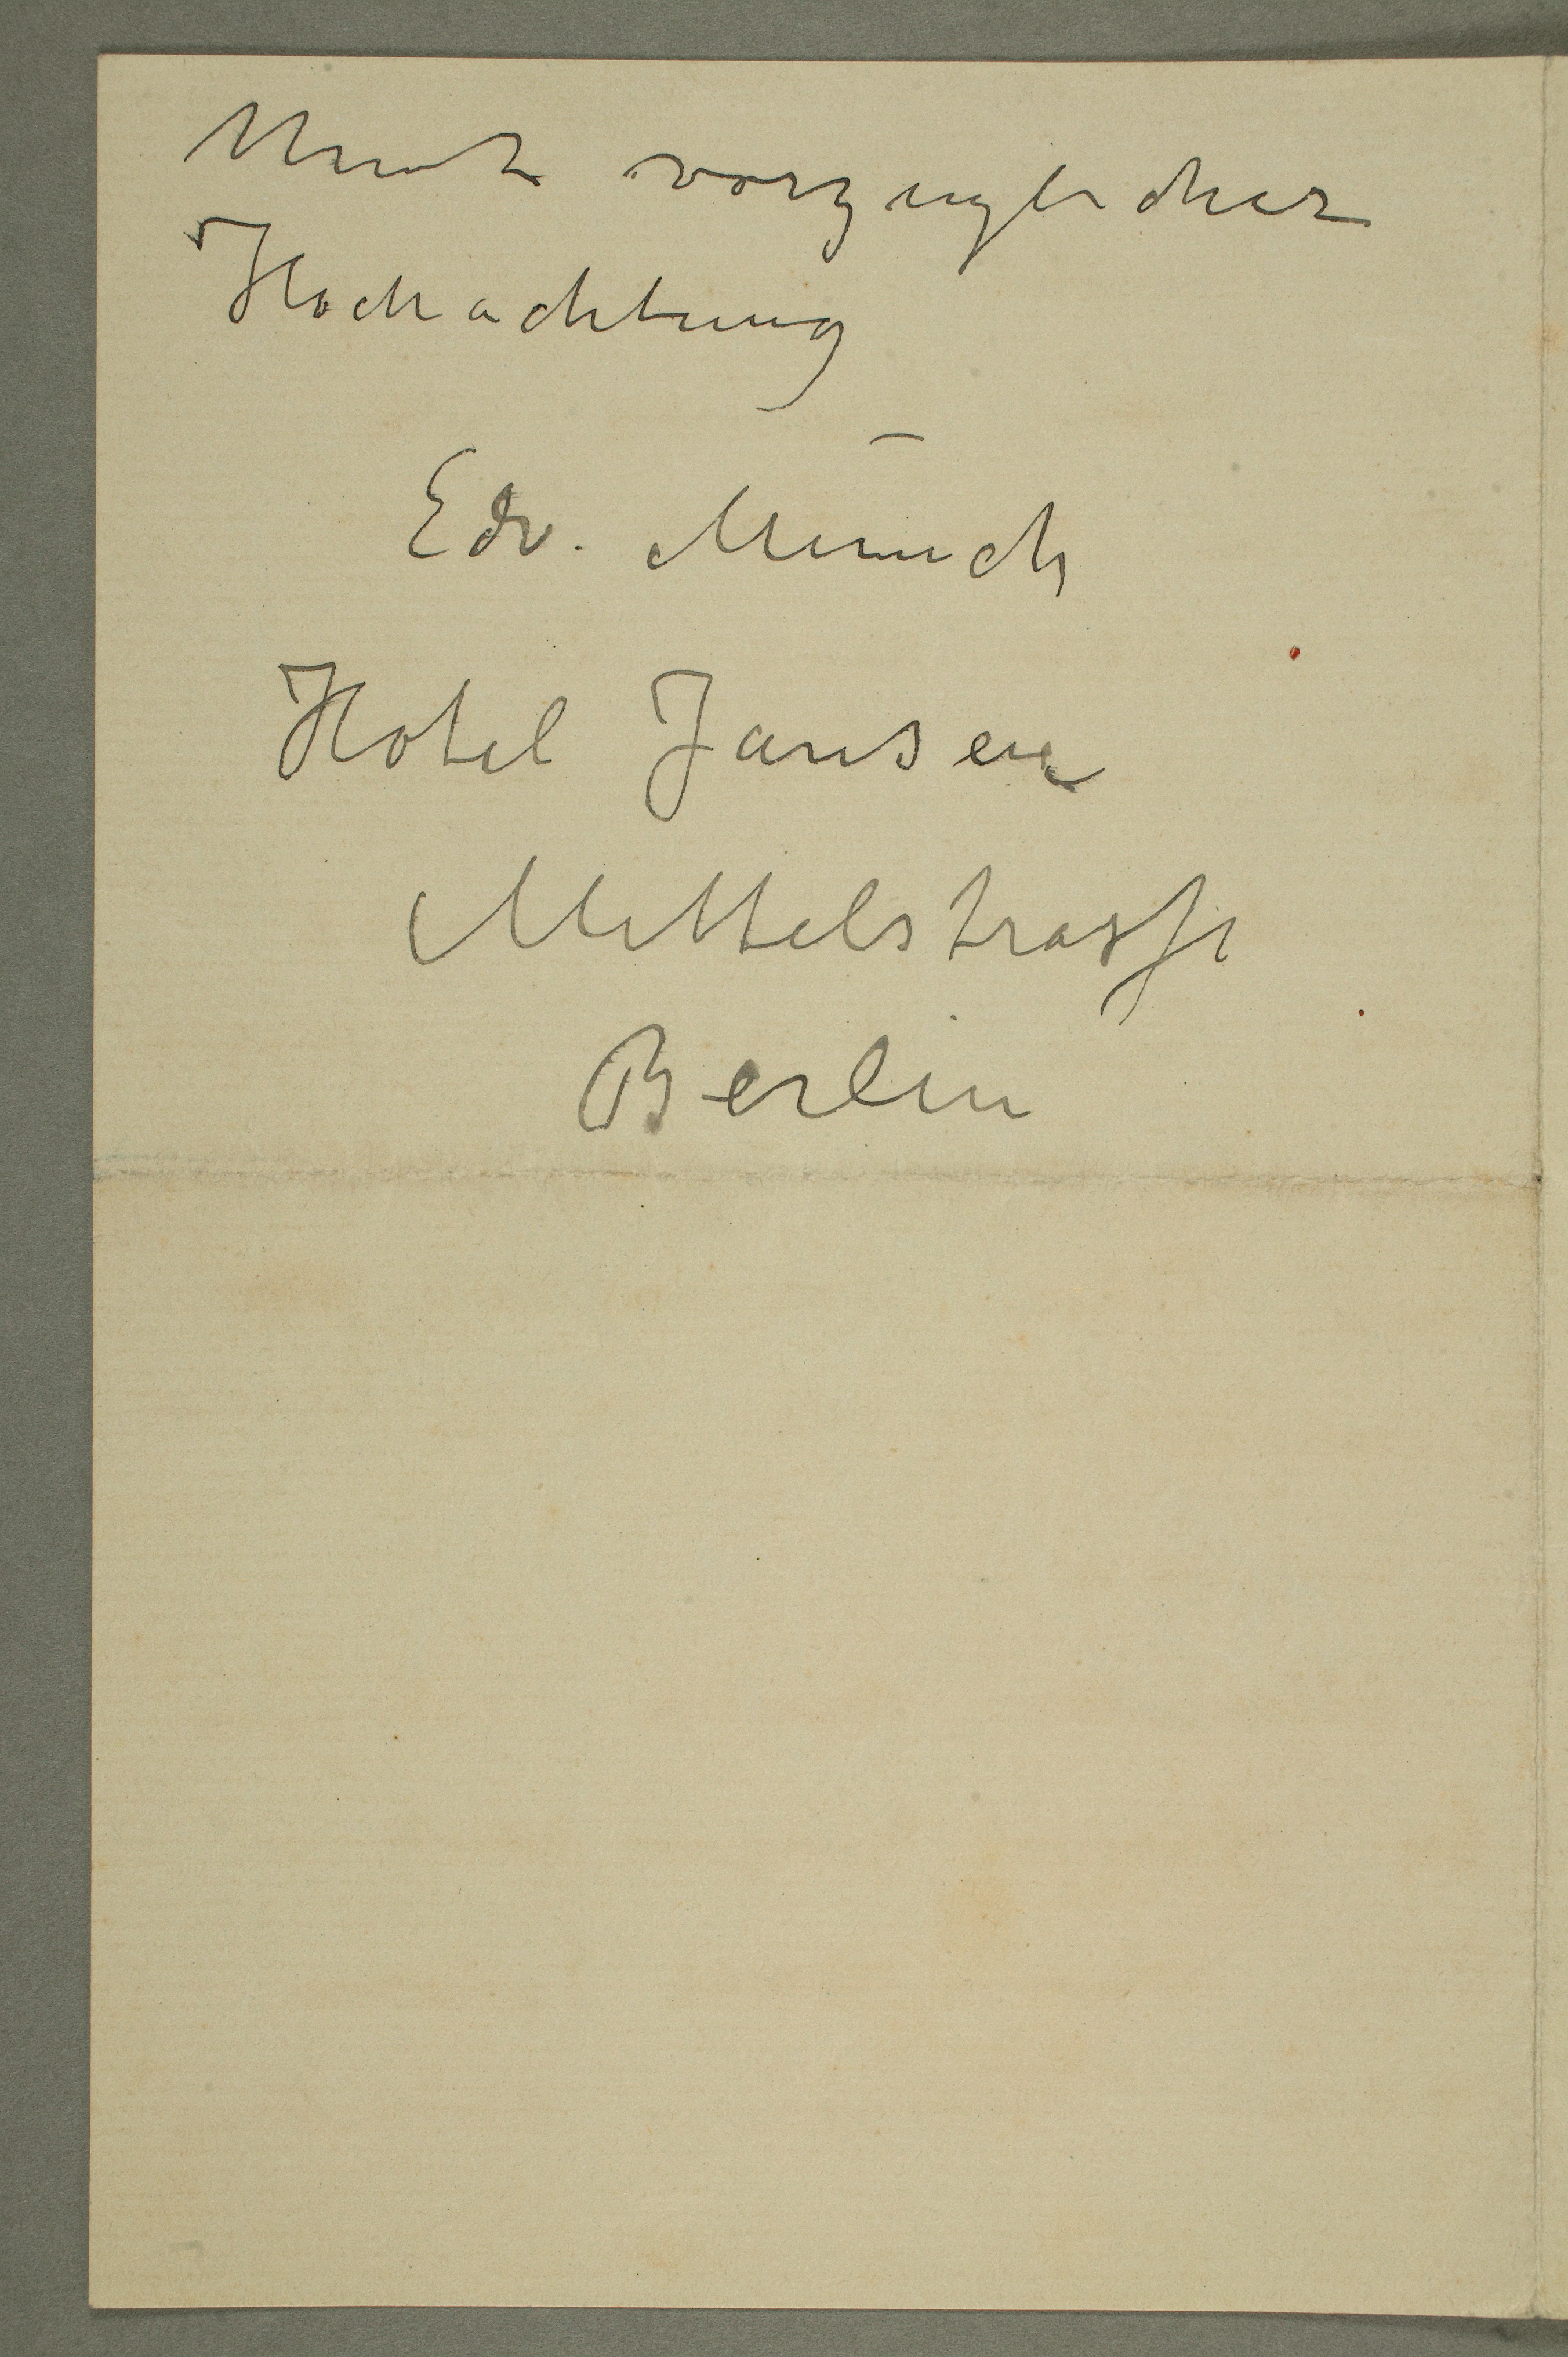 Mit vorzuglicher
Hochachtung
Edv. Munch
Hotel Jansen
Mittelstrasse
Berlin